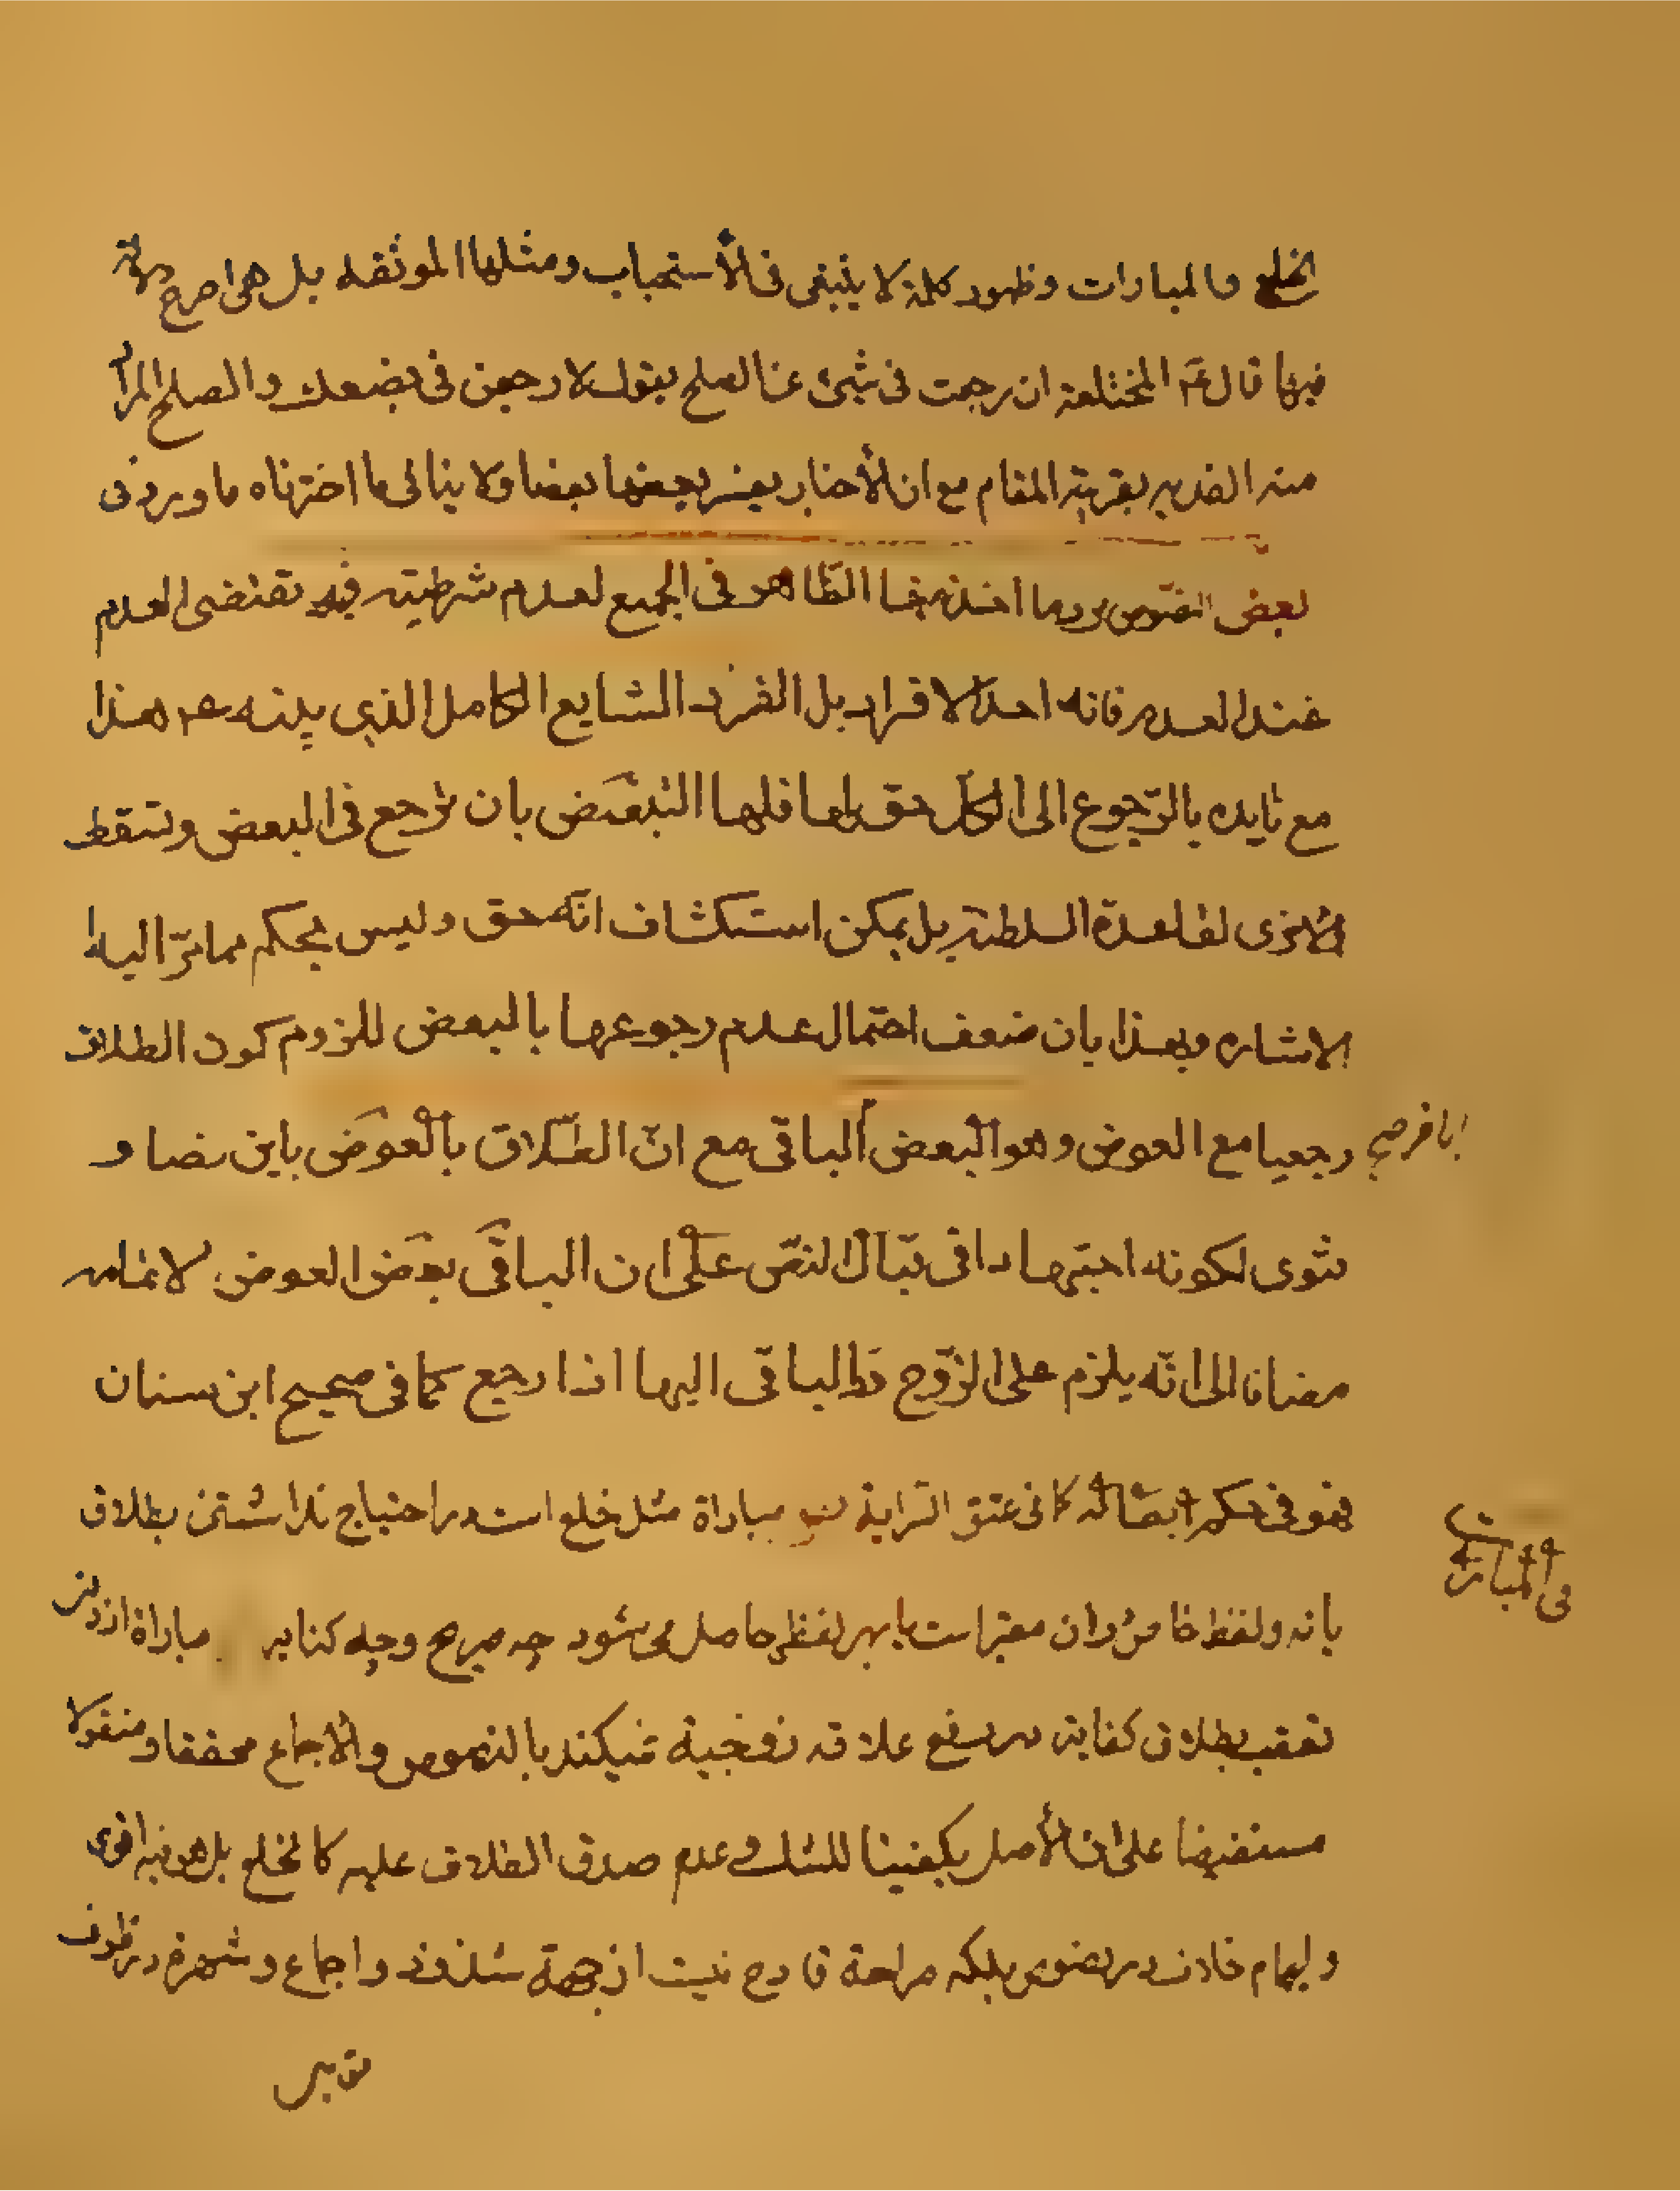 الخلع والمبارات وظهور كلمة لا ينبغى فى الأستحباب ومثلها الموثقه بل هى اصرح دلالة
فيها قال عم المختلعة ان رجعت فى شئ عن الصلح يقول لارجعن فى بضعك والصلح المراد
منه الفديه بقرينة المقام مع ان الأخبار يفسر بعضها بعضا ولا ينافى ما اخترناه ما ورد فى
بعض النصوص اخذ منها الظاهر فى الجميع لعدم شرطيته فيه تقتضى العدم
عند العدم فانه احد الافراد بل الفرد الشايع الكامل الذى بينه عم هذا
مع تايده بالرّجوع الى الكل حق لها فلها التبعّض بان ترجع فى البعض وتسقط
الأخرى لقاعدة السلطنة بل يمكن استكشاف انّه حق وليس بحكم مما مرّ اليه
الاشاره وبهذا بان ضعف احتمال عدم رجوعها بالبعض للزوم كون الطلاق
رجعيا مع العوض وهو البعض الباقى مع انّ الطّلاق بالعوض باين نصا و
فتوى لكونه اجتهادا فى قبال النصّ على ان الباقى بعض العوض لا تمامه
مضافا الى انّه يلزم على الزّوج ردّ الباقى اليها اذا رجع كما فى صحيح ابن سنان
فهو فى حكم ابضاله كما فى عتق القرابة مباراة مثل خلع است در احتياج نداشتن بطلاق
يا نه ولفظ خاص در ان معتبر است يا بهر لفظ حاصل مى شود چه صريح وچه كنايه مباراة از دون
تعقب بطلاق كفايت در رفع علاقه زوجية ميكند بالنصوص والأجماع محققا ومنقولا
مستفيضا على ان الأصل يكفينا للشك فى عدم صدق الطلاق عليه كالخلع بل هو فيه اقوى
وايهام خلاف در نصوص بلكه صراحة قادح نيست از جهة شذوذ واجماع وشهرة در طرف
فى المبارات